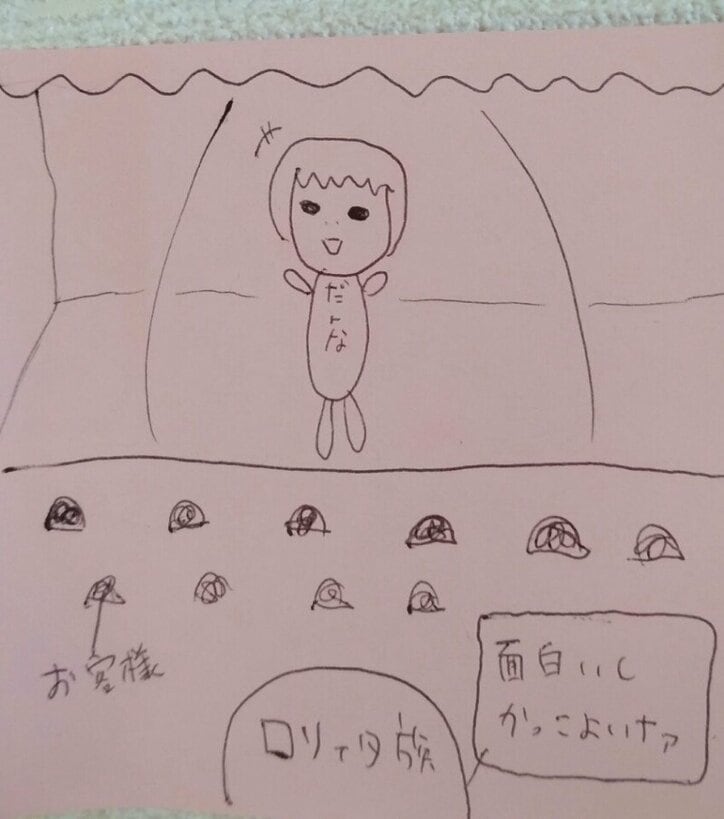 だんな
お客様
面白いし
かっこよいナァ
ロリィタ族